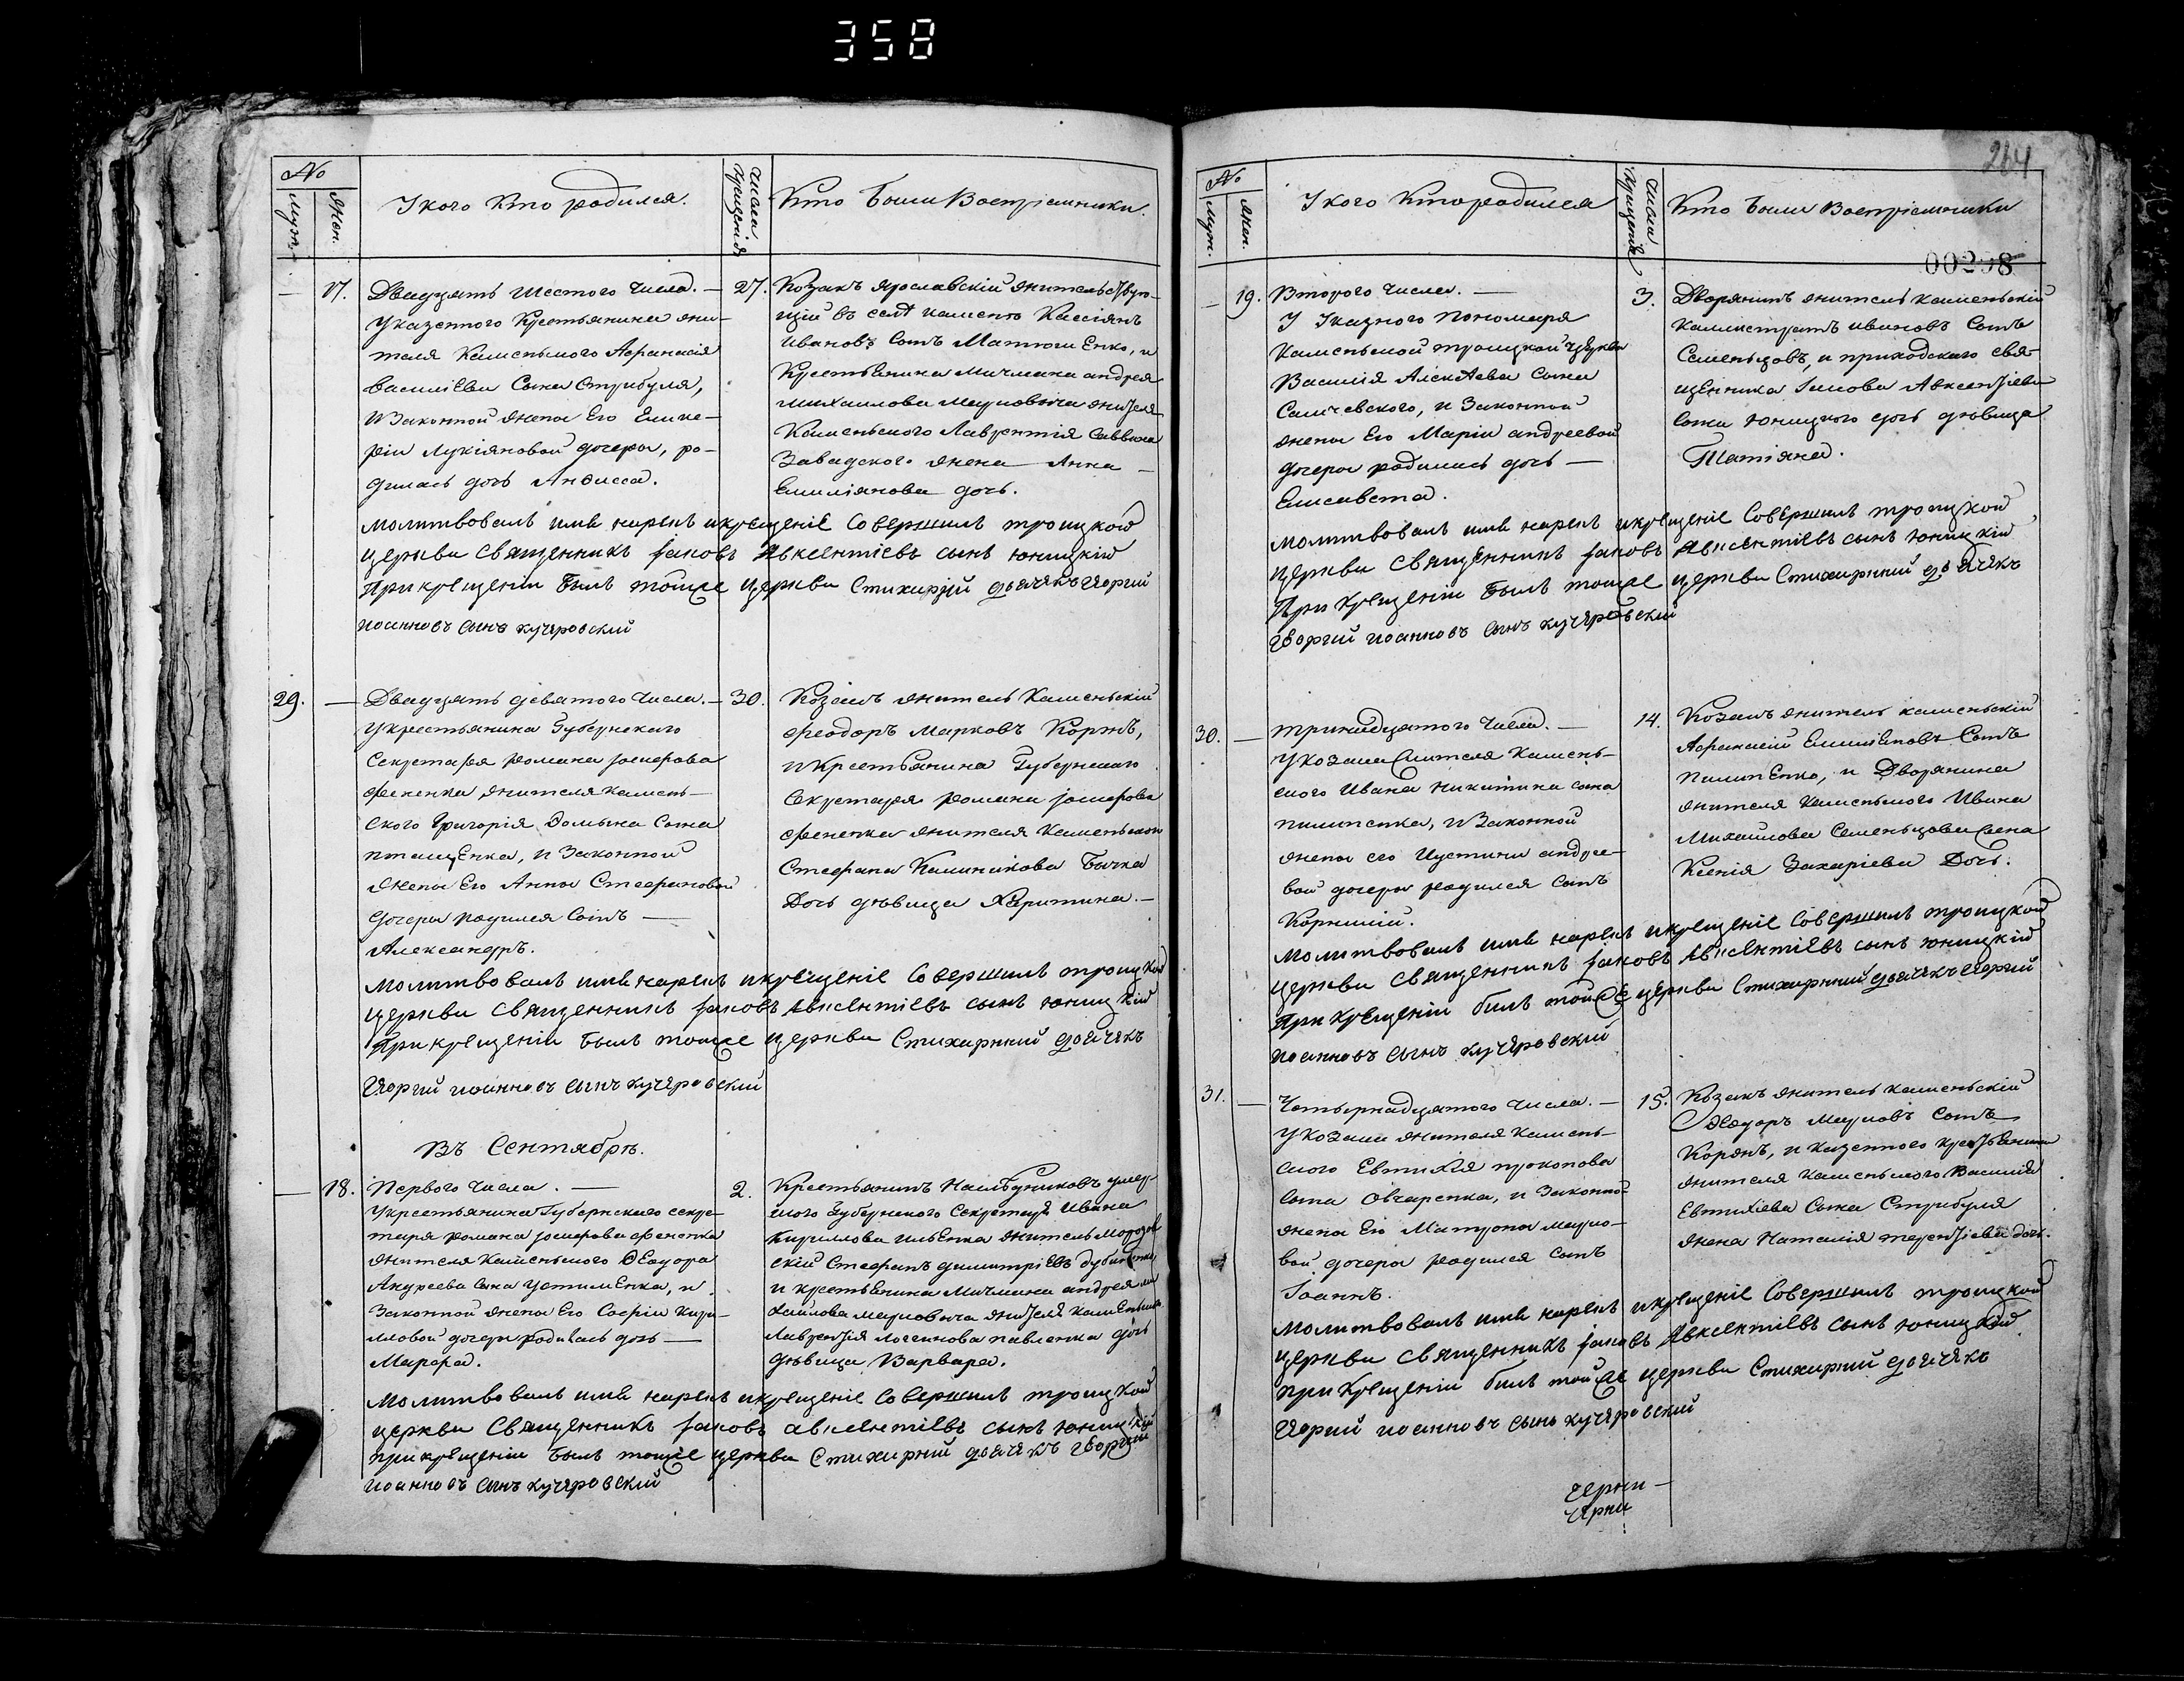 358
№
Муж.
Жен.
У кого Кто родился.
Числа Крещенія
Кто были Воспріемники.
— 17. Двадцять шестого числа. —
Указенного Крестьянина жи-
теля Каменьского Афанасія
Василіева Сына Стрибуля,
и Законной жены Его Глике-
ріи Лукіяновой дочеры, ро-
дилась дочь Анфисса.
27. Козакъ Ярославскій жительствую-
щій въ селѣ Каменю Кассіянъ
Ивановъ Сынъ Матюшенко, и
Крестьянина Мичмана андрея
Михаилова Марковича жителя
Каменьского Лаврентія Саввина
Завадского жена Анна
Емиліянова дочь.
Молитвовалъ имя нарекъ и крещеніе Совершилъ троицкой
церкви Священникъ Іаковъ Авксентіевъ сынъ Юницкій
При крещеніи былъ тоейже церкви Стихарный дьячекъ Георгий
иоанновъ сынъ кучеровский
29. — Двадцять девятого числа. —
У крестьянина Губернского
Секретаря Романа Іосифова
Фененка жителя Камень-
ского Григорія Домьяна Сына
Пташенка, и Законной
жены Его Анны Стефановой
дочеры родился Сынъ —
Александръ.
30. Козакъ житель Каменьскій
Феодоръ Марковъ Коржъ,
и Крестьянина Губернского
Секретаря Романа Іосифова
Фененка жителя Каменьского
Стефана Калиникова Бычка
Дочь дѣвица Харитина. —
Молитвовалъ имя нарекъ и крещеніе Совершилъ троицкой
церкви Священникъ Іаковъ Авксентіевъ сынъ Юницкій
При крещеніи былъ тоейже церкви Стихарний дьячекъ
Георгий иоанновъ сынъ кучеровский
Въ Сентябрѣ.
— 18. Первого числа. —
У крестьянина Губернского секре-
таря Романа Іосифова Фененка
жителя Каменьского Феодора
Андреева Сына Устименка, и
Законной жены Его Софіи Кири-
лловой дочеры родилась дочь —
Марфа.
2. Крестьянинъ Наслѣдниковъ умер-
шого Губернского Секретаря Ивана
Кириллова Ильенка житель
Стефанъ Димитріевъ
и крестьянина Мичмана андрея Ми-
хайлова Марковича жителя Каменьского
Лаврентія Логвинова Павленка дочь
дѣвица Варвара.
Молитвовалъ имя нарекъ и крещеніе Совершилъ троицкой
церкви Священникъ Іаковъ авксентіевъ сынъ Юницкій
При крещеніи былъ тоейже церкви Стихарний дьячекъ Георгий
иоанновъ сынъ кучеровский
264
№
Муж.
Жен.
У кого Кто родился
Числа Крещенія
Кто были Воспріемники
00298
— 19. Второго числа. —
У Указного Пономаря
Каменьской троицкой Церкви
Василія Алексѣева Сына
Саличевского, и Законной
жены Его Маріи андреевой
дочеры родилась дочь —
Елисавета.
3. Дворянинъ житель Каменьскій
Калистратъ ивановъ Сынъ
Семеньцовъ, и приходского свя-
щенника Іакова Авксентіева
Сына Юницкого дочь дѣвица
Татіяна.
Молитвовалъ имя нарекъ и крещеніе Совершилъ троицкой
церкви Священникъ Іаковъ Авксентіевъ сынъ Юницкій
При крещеніи былъ тоейже церкви Стихарний дьячекъ
Георгий иоанновъ сынъ кучеровский
30. — Тринайдцятого числа. —
У Козака жителя Камень-
ского Ивана Никитина сына
Пилипенка, и Законной
жены его Иустины андрее-
вой дочеры родился Сынъ
Корнилій.
14. Козакъ житель каменьскій
Афанасій Емиліеновъ Сынъ
Пилипенко, и Дворянина
жителя Каменьского Ивана
Михаилова Семеньцова жена
Ксенія Захаріева Дочь.
Молитвовалъ имя нарекъ и крещеніе Совершилъ троицкой
церкви Священникъ Іаковъ Авксентіевъ сынъ Юницкій
При крещеніи билъ тойже церкви Стихарний дьячекъ Георгий
иоанновъ сынъ кучеровский
31. — Четьірнадцятого числа. —
У Козака жителя Камень-
ского Евтихія прокопова
Сына Овчаренка, и Законной
жены Его Матроны Марко-
вой дочеры родился сынъ
Іоаннъ.
15. Козакъ житель каменьскій
Феодоръ Марковъ Сынъ
Коржъ, и казенного крестьянина
жителя Каменьского Василія
Евтихіева Сына Стрибуля
жена Наталія терентіева дочь.
Молитвовалъ имя нарекъ и крещеніе Совершилъ троицкой
церкви Священникъ Іаковъ Авксентіевъ сынъ Юницкій
При крещеніи билъ тойже церкви Стихарний дьячекъ
Георгий иоанновъ сынъ кучеровский
черни —
черни